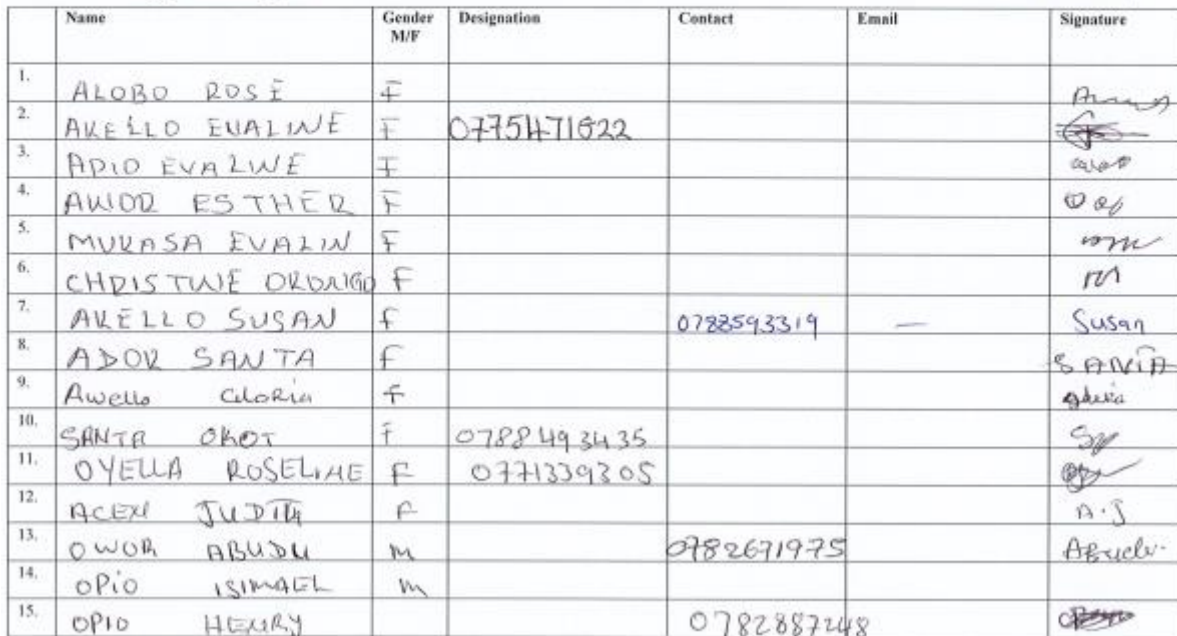 Name Gender M/F Designation Contact Email Signature
1. ALOBO ROSE F
2. AKELLO EVALINE F 0775471622
3. APIO EVALINE F
4. AWOR ESTHER F
5. MUKASA EVALIN F
6. CHRISTINE F
7. AKELLO SUSAN F 0788593319 — Susan
8. ADOR SANTA F SANTA
9. Awello Gloria F
10. SANTA OKOT F 0788493435
11. OYELLA ROSELINE F 0771339305
12. ACEN JUDITH F A.J
13. OWOR ABUDU M 0782671975
14. OPIO ISIMAEL M
15. OPIO HENRY 0782887248